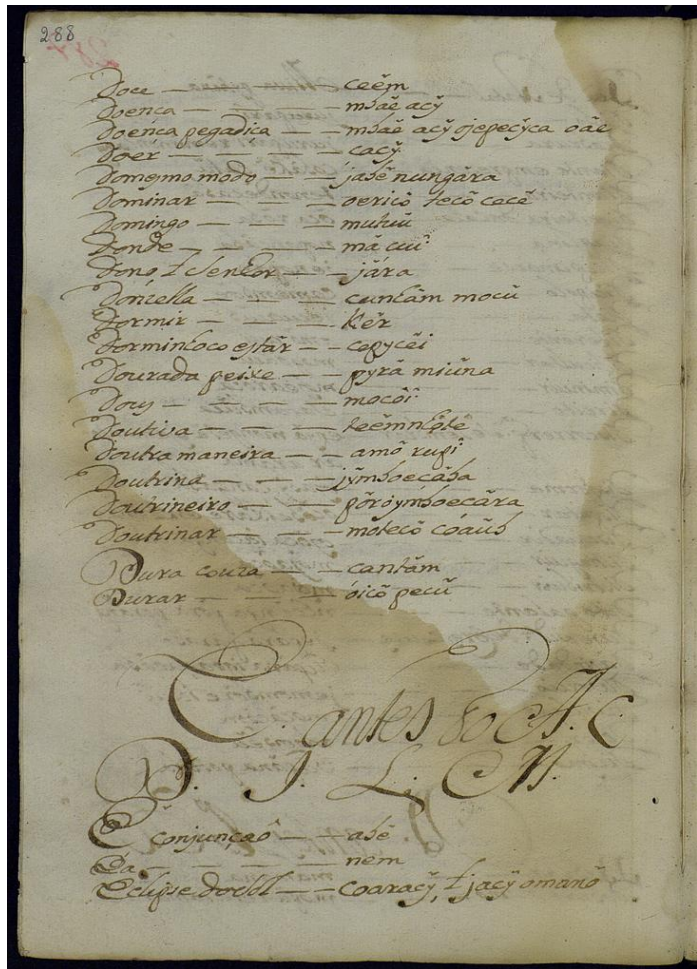 288
Doce — — — — ceẽm
Doença — — — — mbäẽ acÿ
Doença pegadica — — mbäẽ acÿ ojepecÿca öäe
Doer — — — — cacÿ
Domesmo modo — — jabẽ nungára
Dominar — — — oericõ tecõ cecẽ
Domingo — — — mutuũ
Donde — — — — mã cuuĩ
Dono ł Senhor — — jára
Donzella — — — cunhãm mocũ
Dormir — — — kẽr
Dorminhoco estár — — cepycẽi
Dourada peixe — — pyrã miũna
Dous — — — — mocõĩ
Doutiva — — —
Doutra maneira — — amõ rupĩ
Doutrina — — — jÿmboecãba
Doutrineiro — — põroÿmboecãra
Doutrinar — — — mõtecõ cóaúb
Dura couza — — — cantãm
Durar — — — — óicõ pecũ
E. antes do A. C
D. I. L. M.
E conjunçaõ — — abẽ
Ea — — — — nem
Eclipse do Sol — — coaracÿ, ł jacÿ omanõ